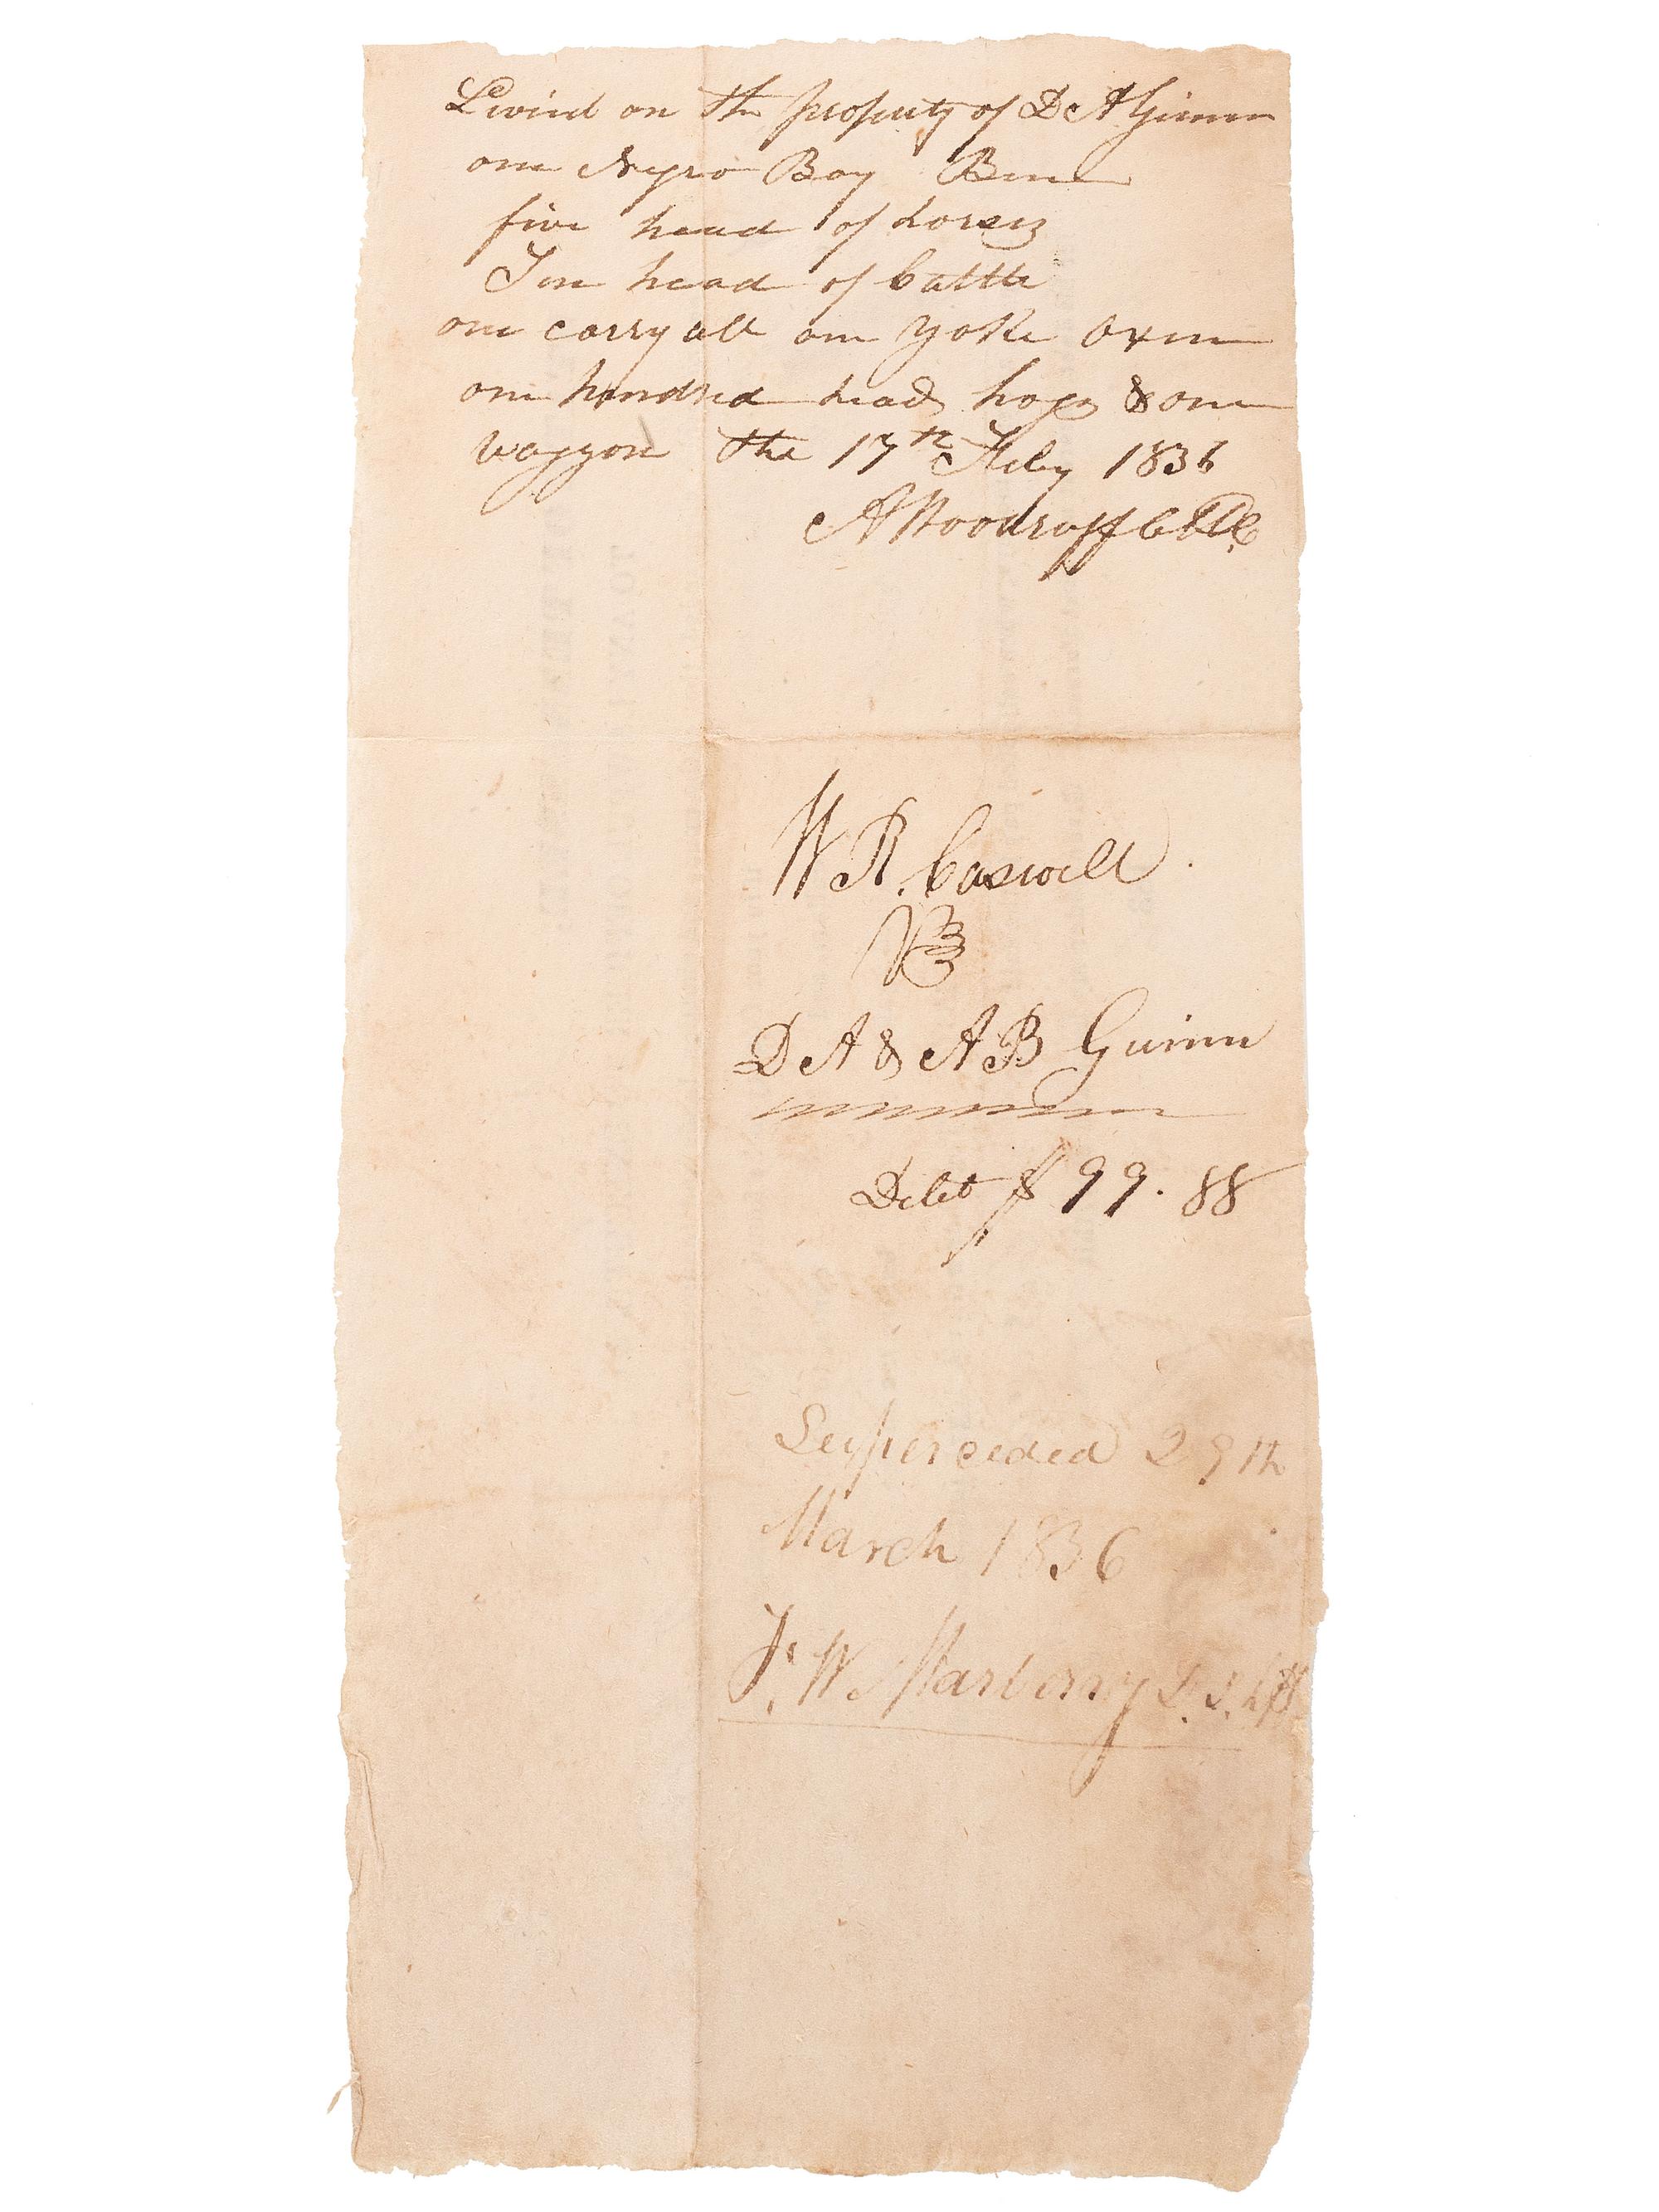 Levied on the property of D A Guinn
one Negro Boy Ben
five head of horses
Ten head of Cattle
one carryall one yoke Oxen
one hundred head hogs & one
Waggon the 17th Feby 1836
A Woodruff
W R. Caswell
VS
D A & A B Guinn
Debt $99.88
Superceded 29th
March 1836
J. W. Marberry D. Shff